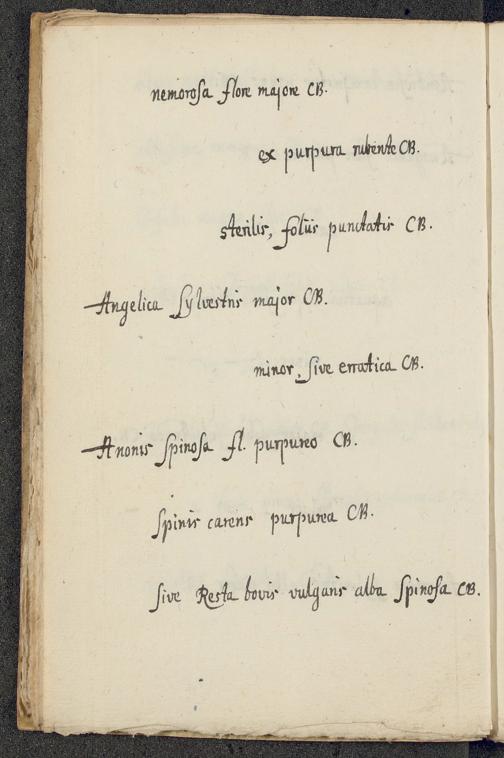 nemoroſa flore majore CB.
ex purpura rubente CB.
sterilis, foliis punctatis CB.
Angelica Sylvestris major CB.
minor, ſive erratica CB.
Anonis Spinoſa fl. purpureo CB.
Spinis carens purpurea CB.
ſive Resta bovis vulgaris alba Spinoſa CB.